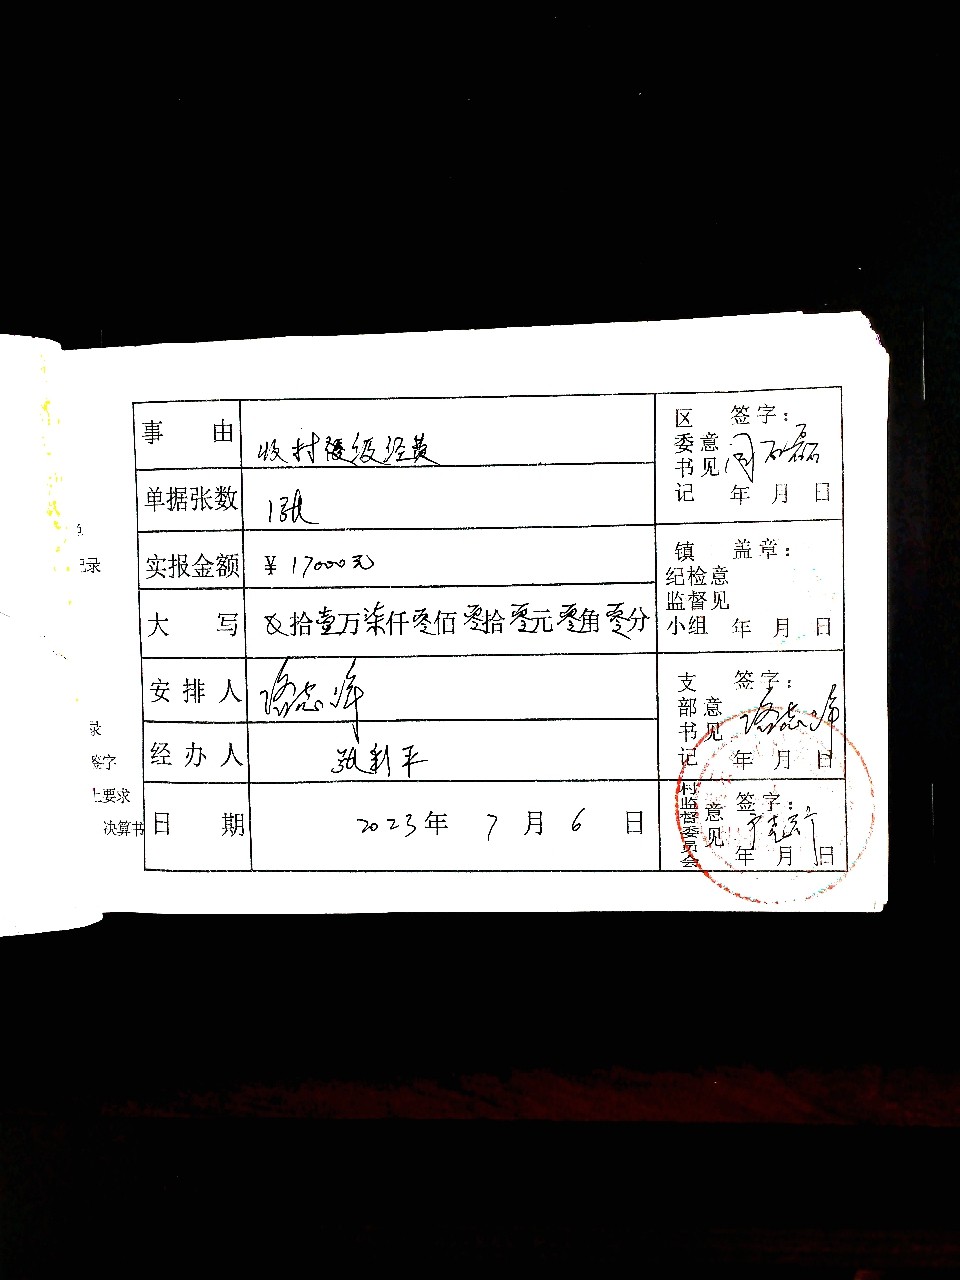 事由 收村级经费
单据张数 1张
实报金额 ¥17000元
大写 ⊗拾壹万柒仟零佰零拾零元零角零分
安排人 路志峰
经办人 张利平
日期 2023年7月6日
区委书记意见 签字:
年 月 日
镇纪检监督小组意见 盖章:
年 月 日
支部书记意见 签字: 路志峰
年 月 日
村监督委员会意见 签字:
年 月 日
录
录
签字
上要求
决算书